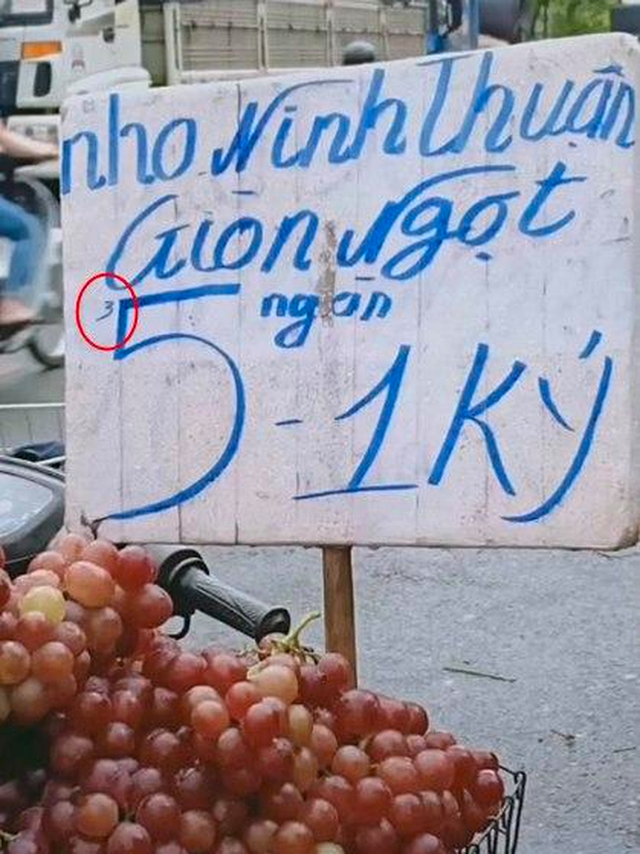 nho Ninh Thuận
Giòn Ngọt
35 ngàn
- 1 Ký